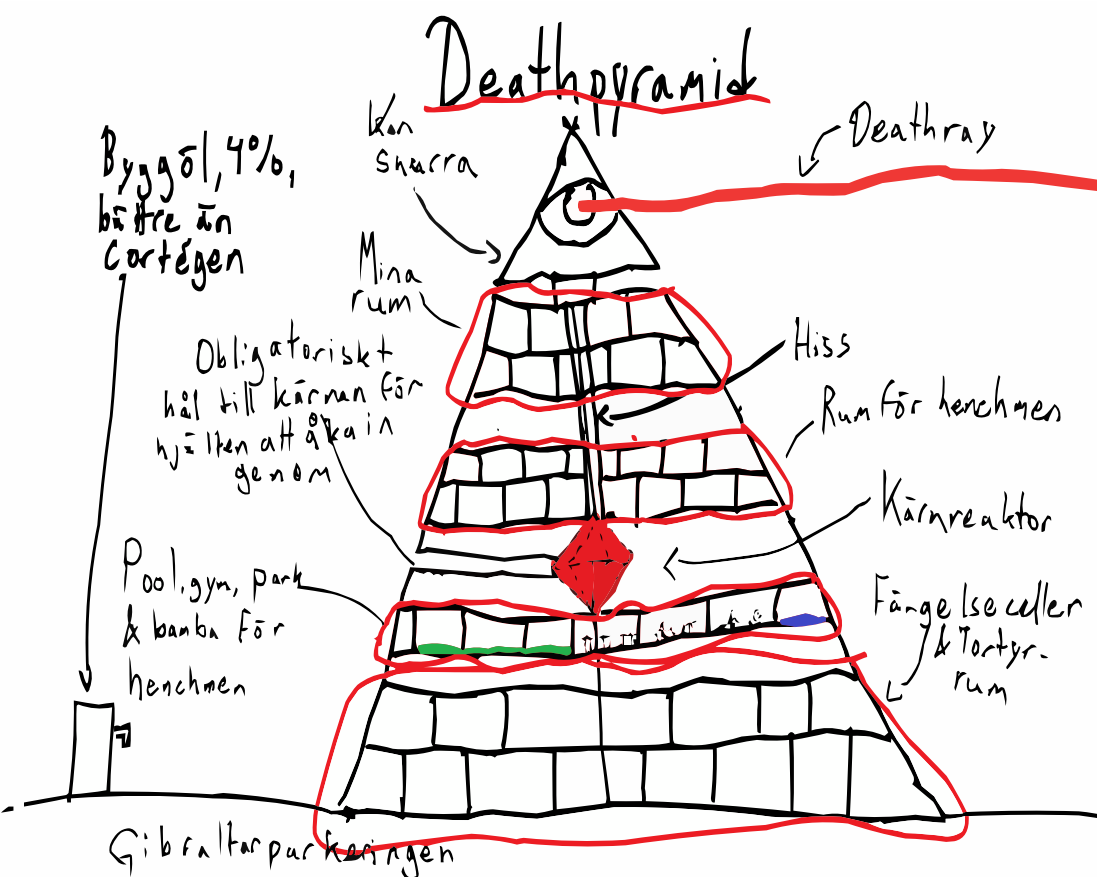 Deathpyramid
Kan
snurra
Deathray
Byggöl, 4%,
bättre än
Cortégen
Mina
rum
Obligatoriskt
hål till kärnan för
hjälten att åka in
genom
Hiss
Rum för henchmen
Kärnreaktor
Pool, gym, park
& bamba för
henchmen
Fängelseceller
& Tortyr-
rum
Gibraltarparkeringen